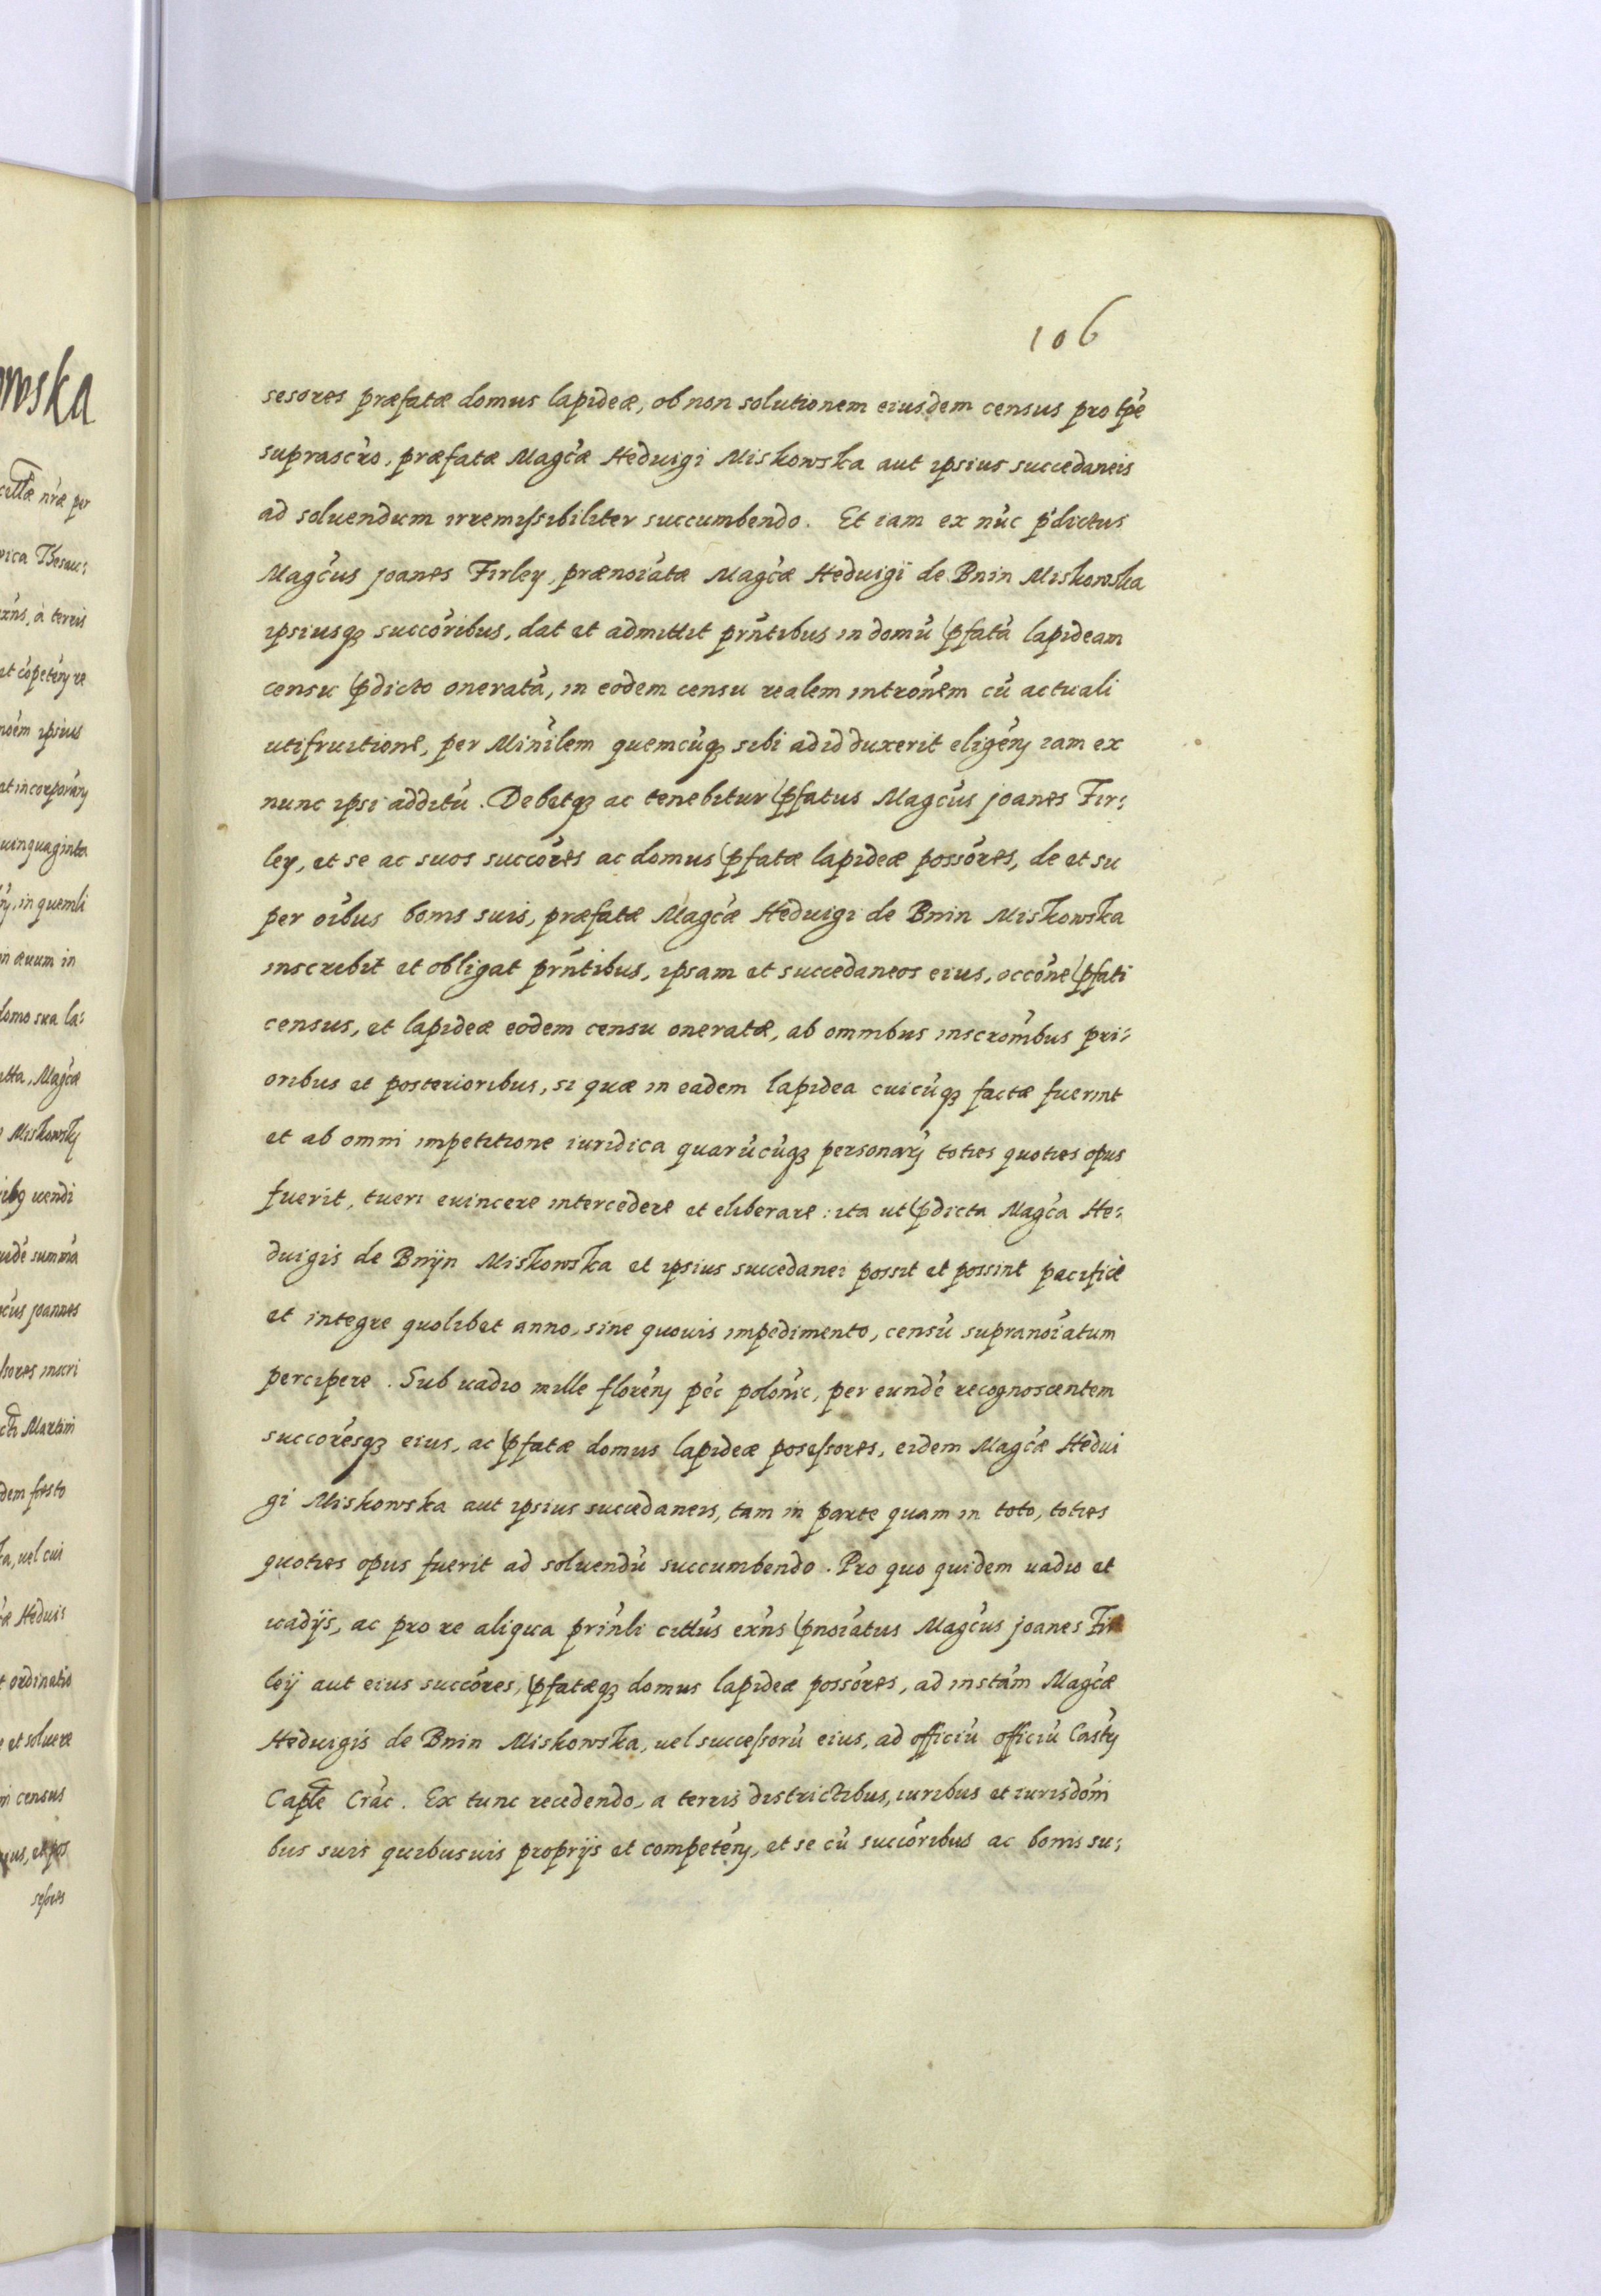 106
sesores præfatæ domus lapideæ, ob non solutionem eiusdem census pro tp̃e
suprascr̃o, præfatæ Magc̃æ Heduigi Miskowska aut ipsius succedaneis
ad soluendum irremissibiliter succumbendo. Et iam ex nũc p̃dictus
Magc̃us Joanes Firley, prænoĩatæ Magc̃æ Heduigi de Bnin Miskowska
ipsiusq₃ succõribus, dat et admittit pr̃ntibus in domũ p̃fatã lapideam
censu p̃dicto oneratã, in eodem censu realem introm̃em cũ actuali
utifruitione, per Minĩlem quemcũq₃ sibi ad id duxerit eligẽn iam ex
nunc ipsi additũ. Debetq₃ ac tenebitur p̃fatus Magc̃us Joanes Fir:
ley, et se ac suos succõres ac domus p̃fatæ lapideæ possõres, de et su
per oĩbus bonis suis, præfatæ Magc̃æ Heduigi de Bnin Miskowska
inscribit et obligat pr̃ntibus, ipsam et succedaneos eius, occõne p̃fati
census, et lapideæ eodem censu oneratæ, ab omnibus inscrõnibus pri:
oribus et posterioribus, si quæ in eadem lapidea cuicũq₃ factæ fuerint
et ab omni impetitione iuridica quarũcũq₃ personarũ toties quoties opus
fuerit, tueri euincere intercedere et eliberare: ita ut p̃dicta Magc̃a He:
duigis de Bnijn Miskowska et ipsius succedanei possit et possint pacificè
et integre quolibet anno, sine quouis impedimento, censũ supranoĩatum
percipere. Sub uadio mille florẽn pẽc polõnic, per eundẽ recognoscentem
succõresq₃ eius, ac p̃fatæ domus lapideæ posessores, eidem Magc̃æ Hedui
gi Miskowska aut ipsius succedaneis, tam in parte quam in toto, toties
quoties opus fuerit ad soluendũ succumbendo. Pro quo quidem uadio et
uadijs, ac pro re aliqua prĩnli cittũs exñs p̃noĩatus Magc̃us Joanes Fir
leij aut eius succõres, p̃fatæq₃ domus lapideæ possõres, ad instãm Magc̃æ
Heduigis de Bnin Miskowska, uel successorũ eius, ad officiũ officiũ Castr̃
Capl̃e Crãc. Ex tunc recedendo, a terris districtibus, iuribus et iurisdõni
bus suis quibusuis proprijs et competẽn, et se cũ succõribus ac bonis su: